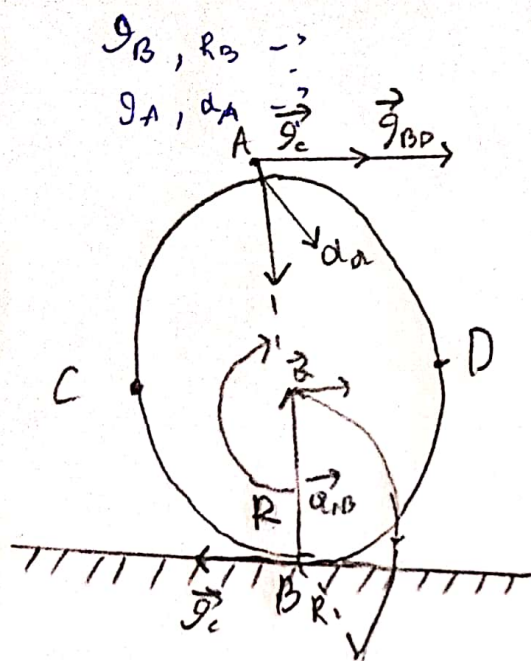 ϑ_B, R_B - ?
ϑ_A, a_A - ?
A ϑ⃗_c ϑ⃗_BP
a_A
C D
R a⃗_nB
ϑ⃗_c B R₁